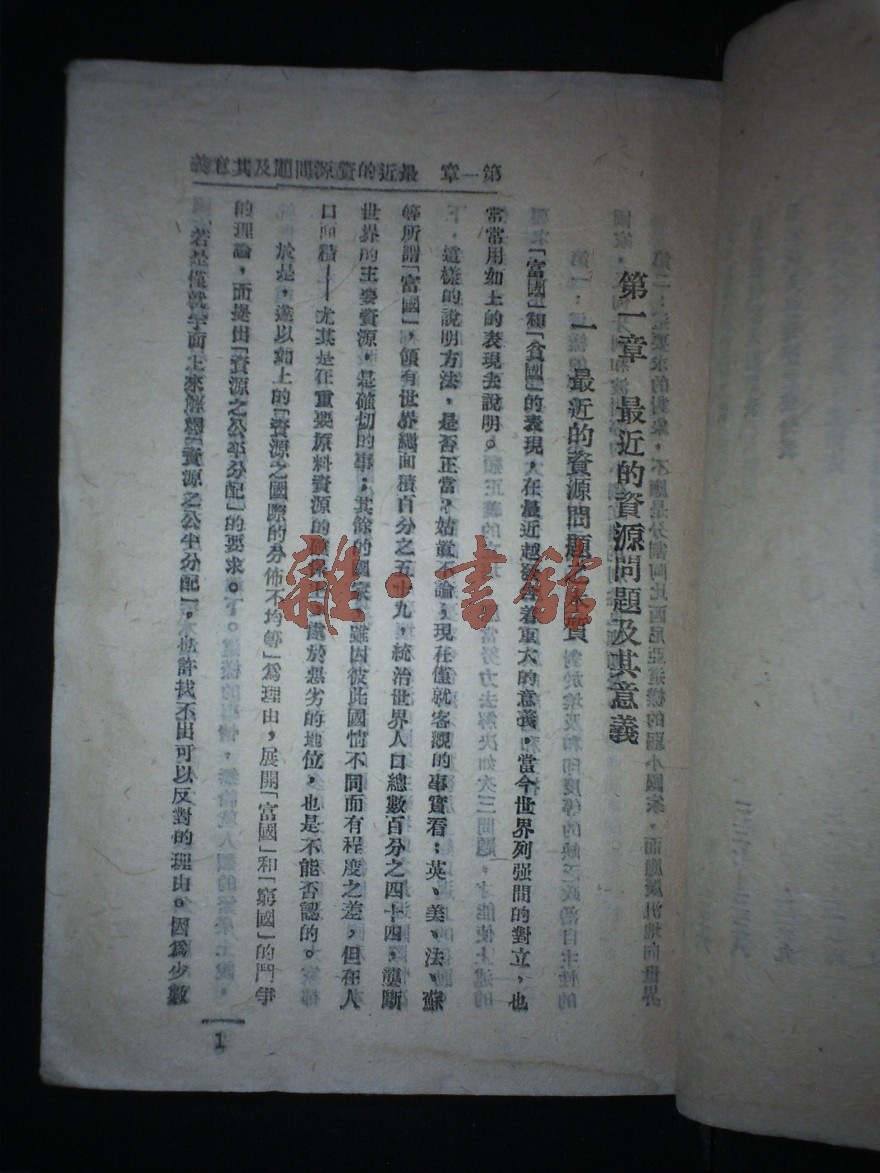 第一章 最近的資源問題及其意義
第一章 最近的資源問題及其意義
一 最近的資源問題之本質
「富國」和「貧國」的表現，在最近越發含着重大的意義，當今世界列强間的對立，也
常常用如上的表現去說明。
這樣的說明方法，是否正當？姑置不論；現在僅就客觀的事實看：英、美、法、蘇
等所謂「富國」，領有世界總面積百分之五十九，統治世界人口總數百分之四十四，壟斷
世界的主要資源，是確切的事；其餘的國家，雖因彼此國情不同而有程度之差，但在人
口面積——尤其是在重要原料資源的確保上，處於惡劣的地位，也是不能否認的。
於是，遂以如上的「資源之國際的分佈不均等」爲理由，展開「富國」和「窮國」的鬥爭
的理論，而提出「資源之公平分配」的要求。
若是僅就字面上來解釋「資源之公平分配」，也許找不出可以反對的理由。因爲少數
1
雜·書館